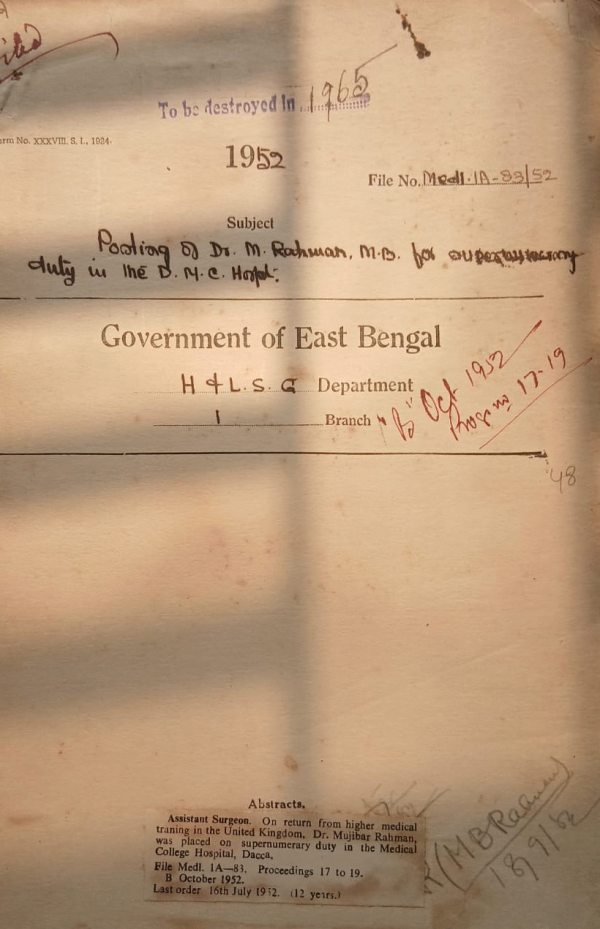 To be destroyed in 1965
orm No. XXXVIII. S. I., 1924.
1952
File No. Medl. 1A-83/52
Subject
Posting of Dr. M. Rahman, M.B. for supernumerary
duty in the D. M. C. Hospl:
Government of East Bengal
H & L. S. G Department
1 Branch
"B" Oct 1952
Progs no 17-19
48
Abstracts.
Assistant Surgeon. On return from higher medical
traning in the United Kingdom, Dr. Mujibar Rahman,
was placed on supernumerary duty in the Medical
College Hospital, Dacca.
File Medl. 1A—83. Proceedings 17 to 19.
B October 1952.
Last order 16th July 1952. (12 years.)
(M B Rahman)
18/9/52